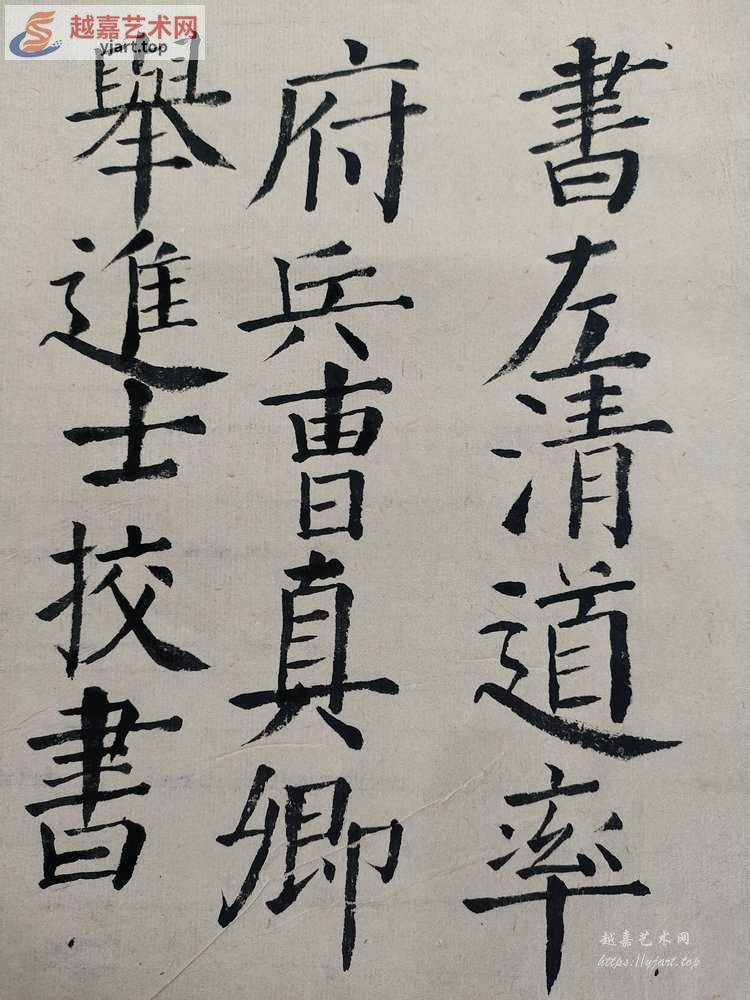 越嘉艺术网
yjart.top
書左清道率
府兵曹真卿
舉進士挍書
越嘉艺术网
https://yjart.top